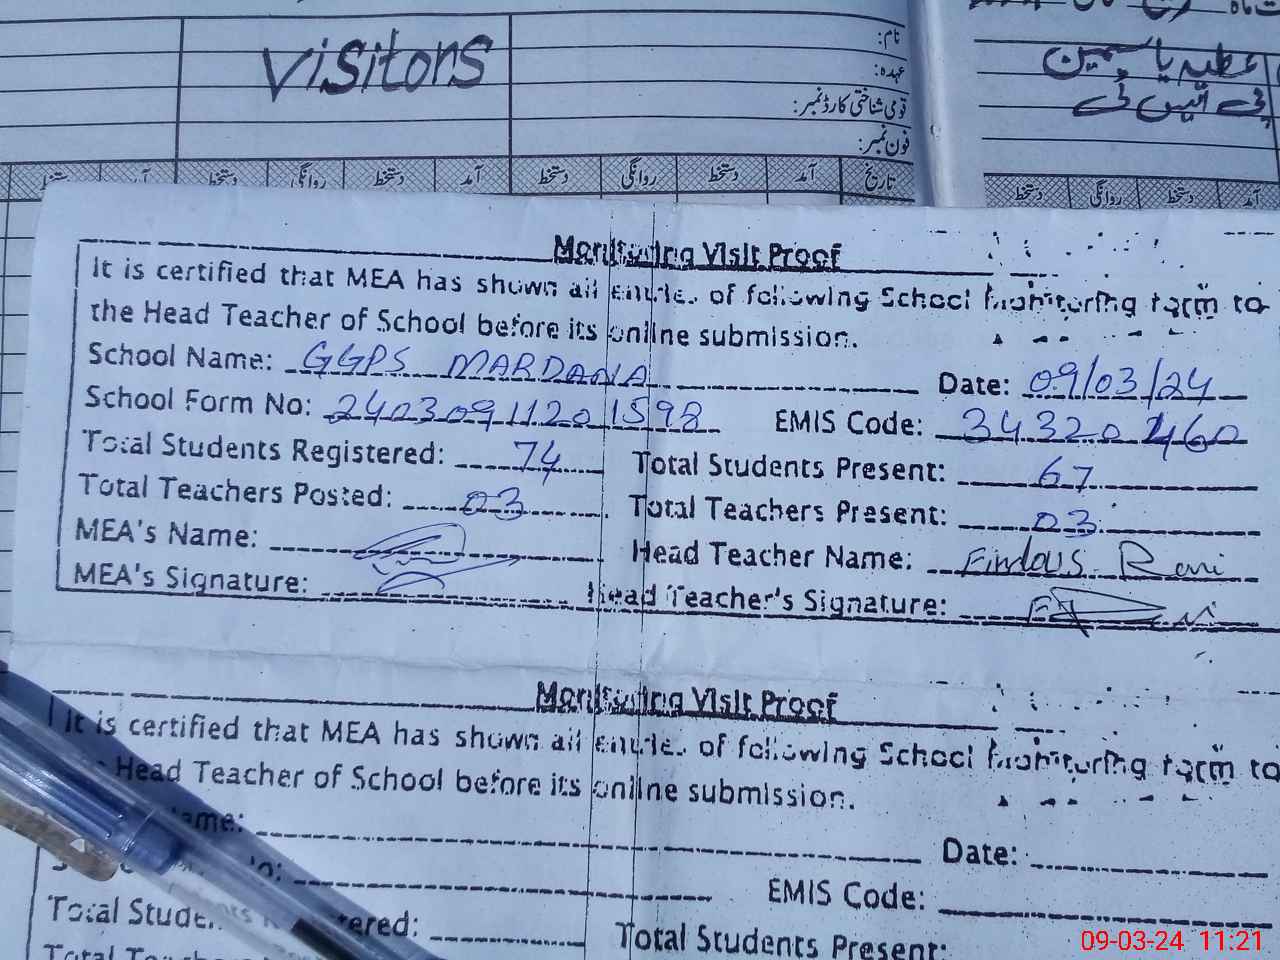 visitors
نام:
عہدہ:
قومی شناختی کارڈ نمبر:
فون نمبر:
عطیہ یاسمین
پی ایس ٹی
تاریخ آمد دستخط روانگی دستخط آمد دستخط روانگی دستخط
آمد دستخط روانگی دستخط
Monitoring Visit Proof
It is certified that MEA has shown all entries of following School Monitoring form to
the Head Teacher of School before its online submission.
School Name: GGPS MARDANA Date: 09/03/24
School Form No: 24030911201598 EMIS Code: 34320460
Total Students Registered: 74 Total Students Present: 67
Total Teachers Posted: 03 Total Teachers Present: 03
MEA's Name: Head Teacher Name: Firdous Rani
MEA's Signature: Head Teacher's Signature:
Monitoring Visit Proof
It is certified that MEA has shown all entries of following School Monitoring form to
Head Teacher of School before its online submission.
ame: Date:
o: EMIS Code:
Total Stude ered:
Total Students Present:
09-03-24 11:21